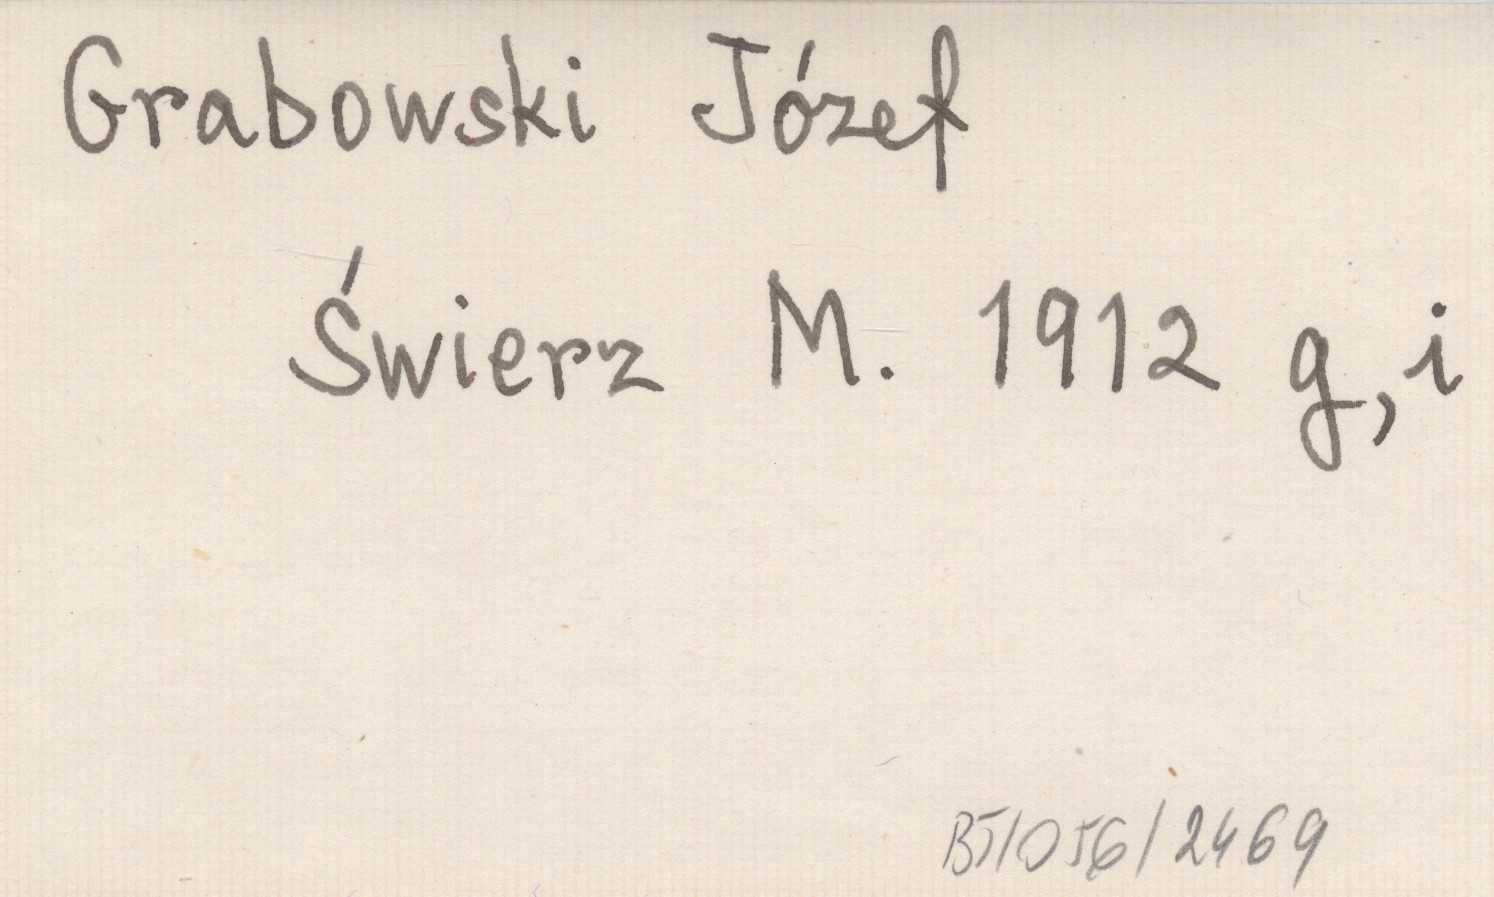 Grabowski Józef
Świerz M. 1912 g, i
BJ/056/2469